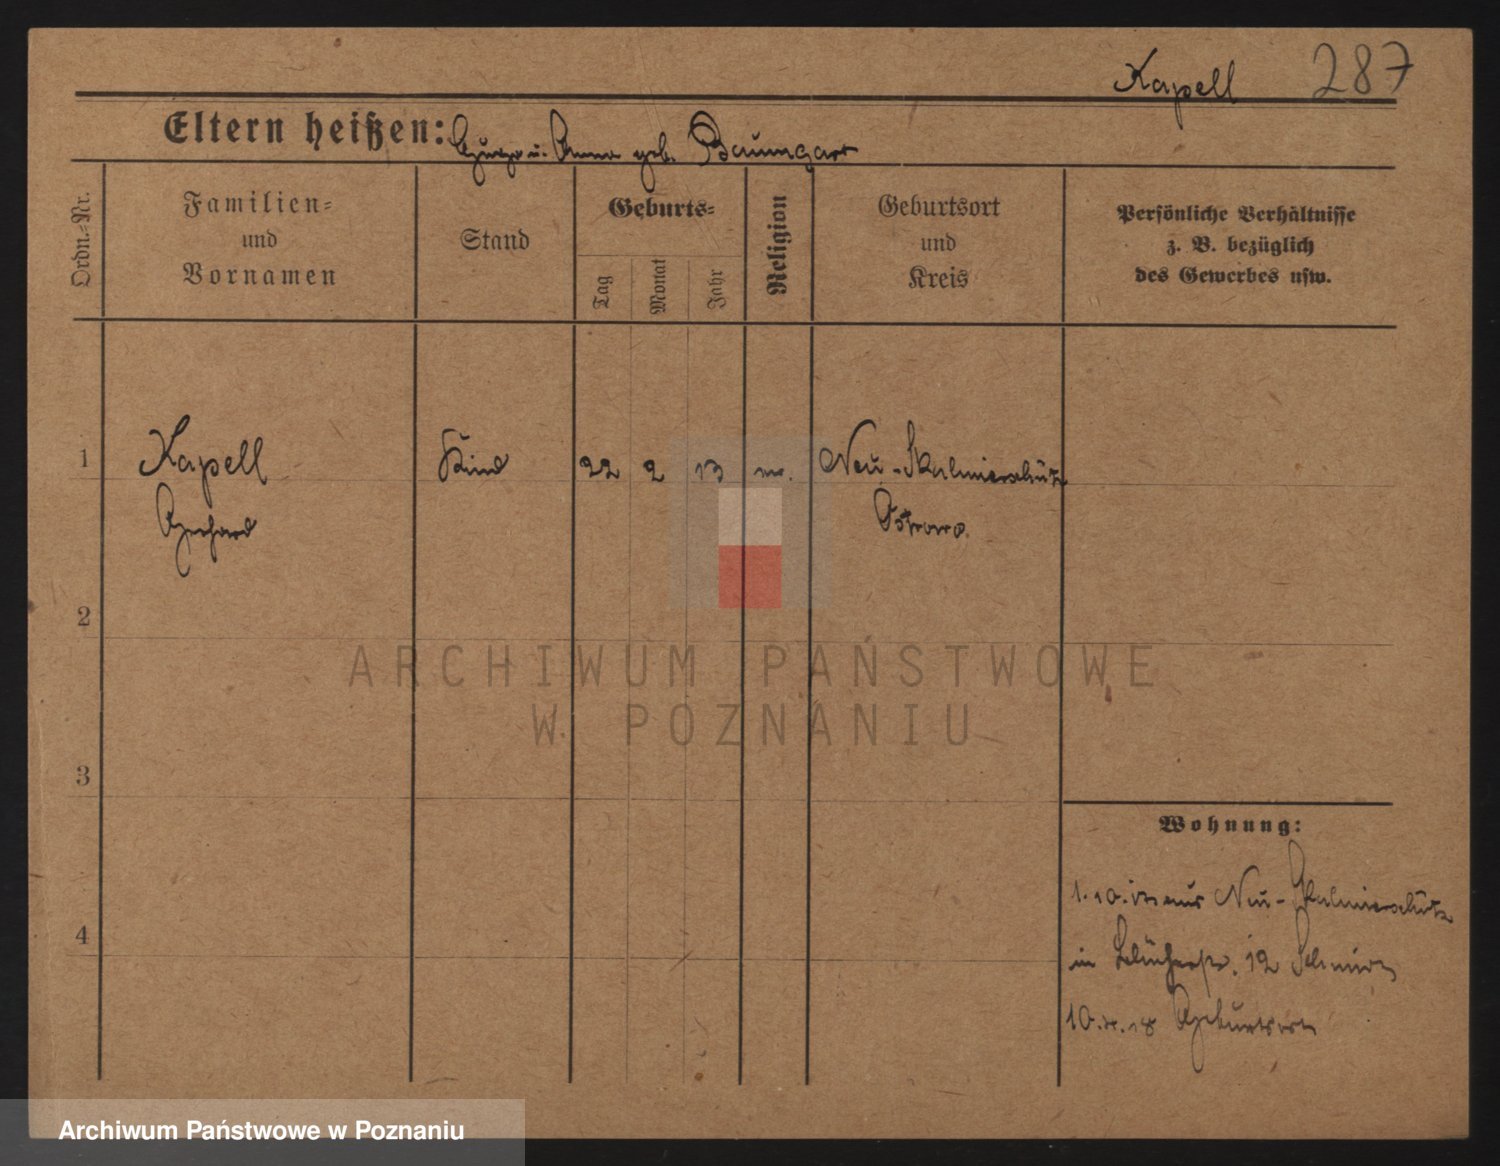 Kapell 287
Eltern heißen: u. Anna geb. Baumgart
Ordn.=Nr.
Familien=
und
Vornamen
Stand
Geburts=
Tag
Monat
Jahr
Religion
Geburtsort
und
Kreis
Persönliche Verhältnisse
z. B. bezüglich
des Gewerbes usw.
1 Kapell Kind 22 2 13 Neu-Skalmierschütz
Gerhard Ostrowo.
2
ARCHIWUM PAŃSTWOWE
W POZNANIU
3
Wohnung:
1.10. aus Neu-Skalmierschütz
4
in 12
10. 18 Geburtsort
Archiwum Państwowe w Poznaniu